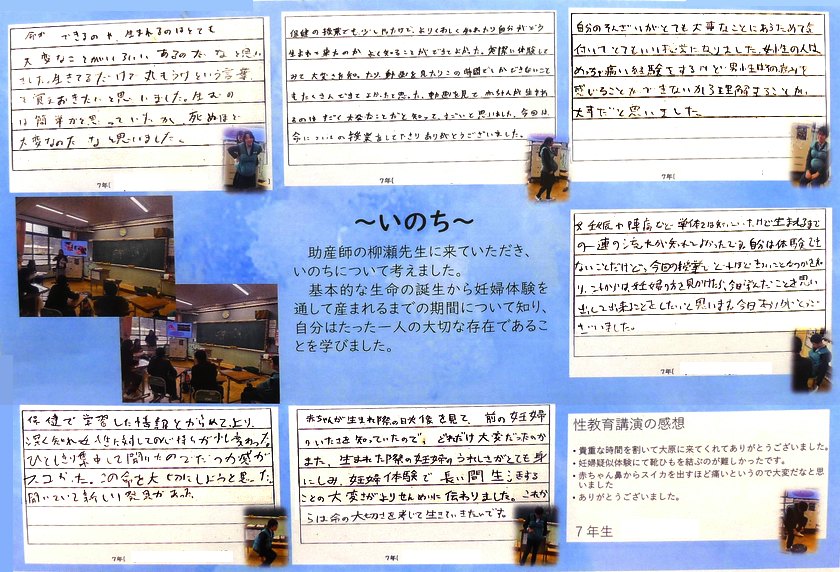 命が できるのや、生まれるのはとても
大変なことがいろいろあるのだなと思い
ました。生きてるだけで丸もうけという言葉
て覚えおきたいと思いました。生むの
は簡単かと思っていたが、死ぬほど
大変なのだなと思いました。
7年(
保健の授業でも少しやったけど、よりくわしく知れたり自分がどう
生まれて来たのかよく知ることができてよかった。実際に体験し
てみて大変さを知ったり、動画を見たりこの時間でしかできないこと
もたくさんできてよかったと思った。動画を見て赤ちゃんが生まれ
るのはすごく大変なことだと知って、すごいと思いました。今回は
命についての授業をしてくださりありがとうございました。
7年(
自分のそんざいがとても大事なことにあらためて気
付いてとてもいい授業になりました。女性の人は
めっちゃ痛い経験をするけど男性はその痛みを
感じることができないから理解することが
大事だと思いました。
7年(
~いのち~
助産師の柳瀬先生に来ていただき、
いのちについて考えました。
基本的な生命の誕生から妊婦体験を
通して産まれるまでの期間について知り、
自分はたった一人の大切な存在であるこ
とを学びました。
妊娠や陣痛など単体では知っていたけど生まれるまで
の一連の流れが知れてよかったです。自分は体験でき
ないことだけど、今回の授業で
これからは妊婦の方を見かけたら、今日学んだことを思い
出して出来ることをしたいと思います。今日ありがとうご
ざいました。
7年(
保健で学習した情報とかられて、より
深く知れた
ひとしきり集中して聞いたのでだつ力感が
スゴかった。この命を大切にしようと思った。
聞いていて新しい発見があった。
7年(
赤ちゃんが生まれた際の映像を見て、前の妊婦
のいたさを知っていたので、どれだけ大変だったのか
また、生まれた際の妊婦のうれしさがとても身
にしみ、妊婦体験で長い間生活する
ことの大変さがよりせんめいに伝わりました。これか
らは命の大切さを感じて生きていきたいです。
7年(
性教育講演の感想
• 貴重な時間を割いて大原に来てくれてありがとうございました。
• 妊婦疑似体験にて靴ひもを結ぶのが難しかったです。
• 赤ちゃん鼻からスイカを出すほど痛いというので大変だなと思
いました
• ありがとうございました。
7年生